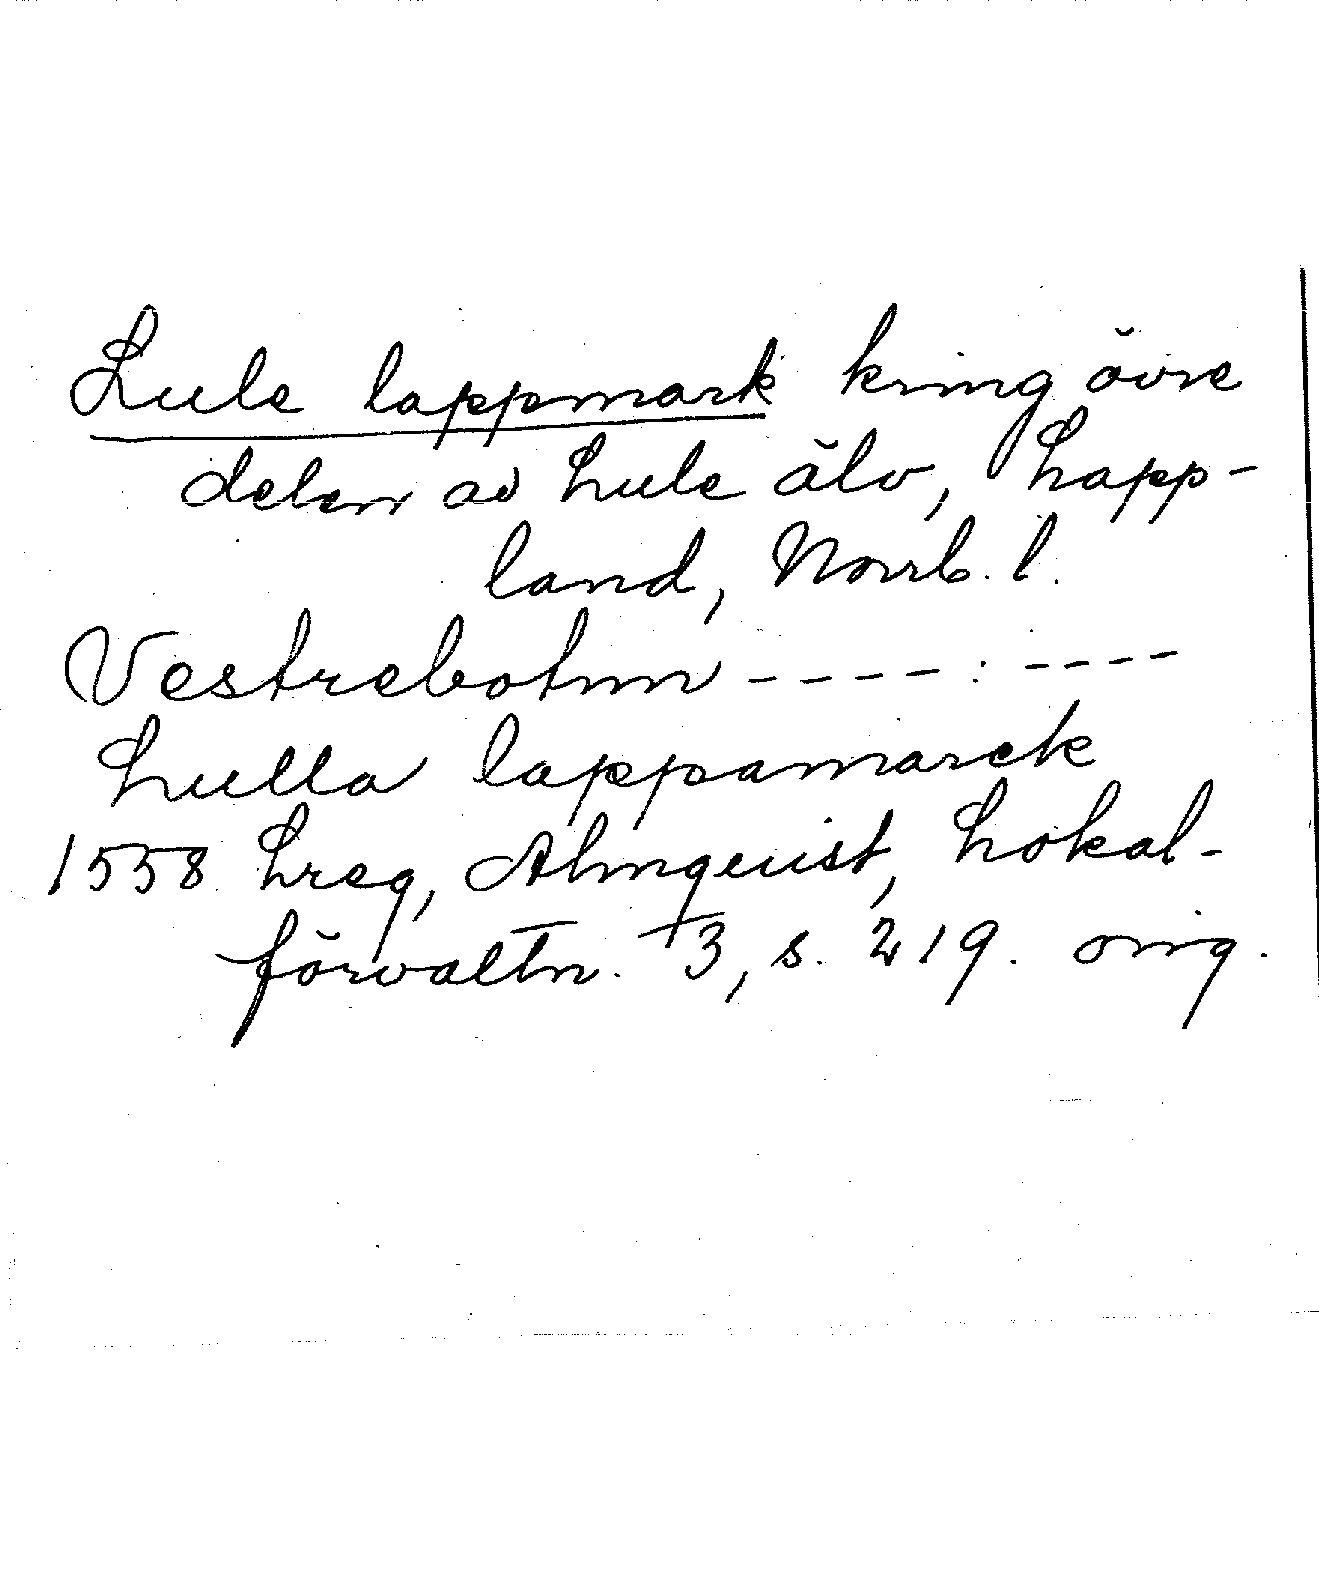 Lule lappmark kring övre
delen av Lule älv, Lapp-
land, Norrb. l.
Vestrebotnn - - - - : - - - -
Lulla lappamarck
1558 Lreg, Almquist, Lokal-
förvaltn. 3, s. 219. orig.